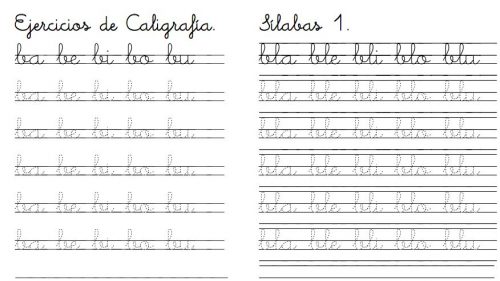 Ejercicios de Caligrafía. Sílabas 1.
ba be bi bo bu
ba be bi bo bu
ba be bi bo bu
ba be bi bo bu
ba be bi bo bu
ba be bi bo bu
bla ble bli blo blu
bla ble bli blo blu
bla ble bli blo blu
bla ble bli blo blu
bla ble bli blo blu
bla ble bli blo blu